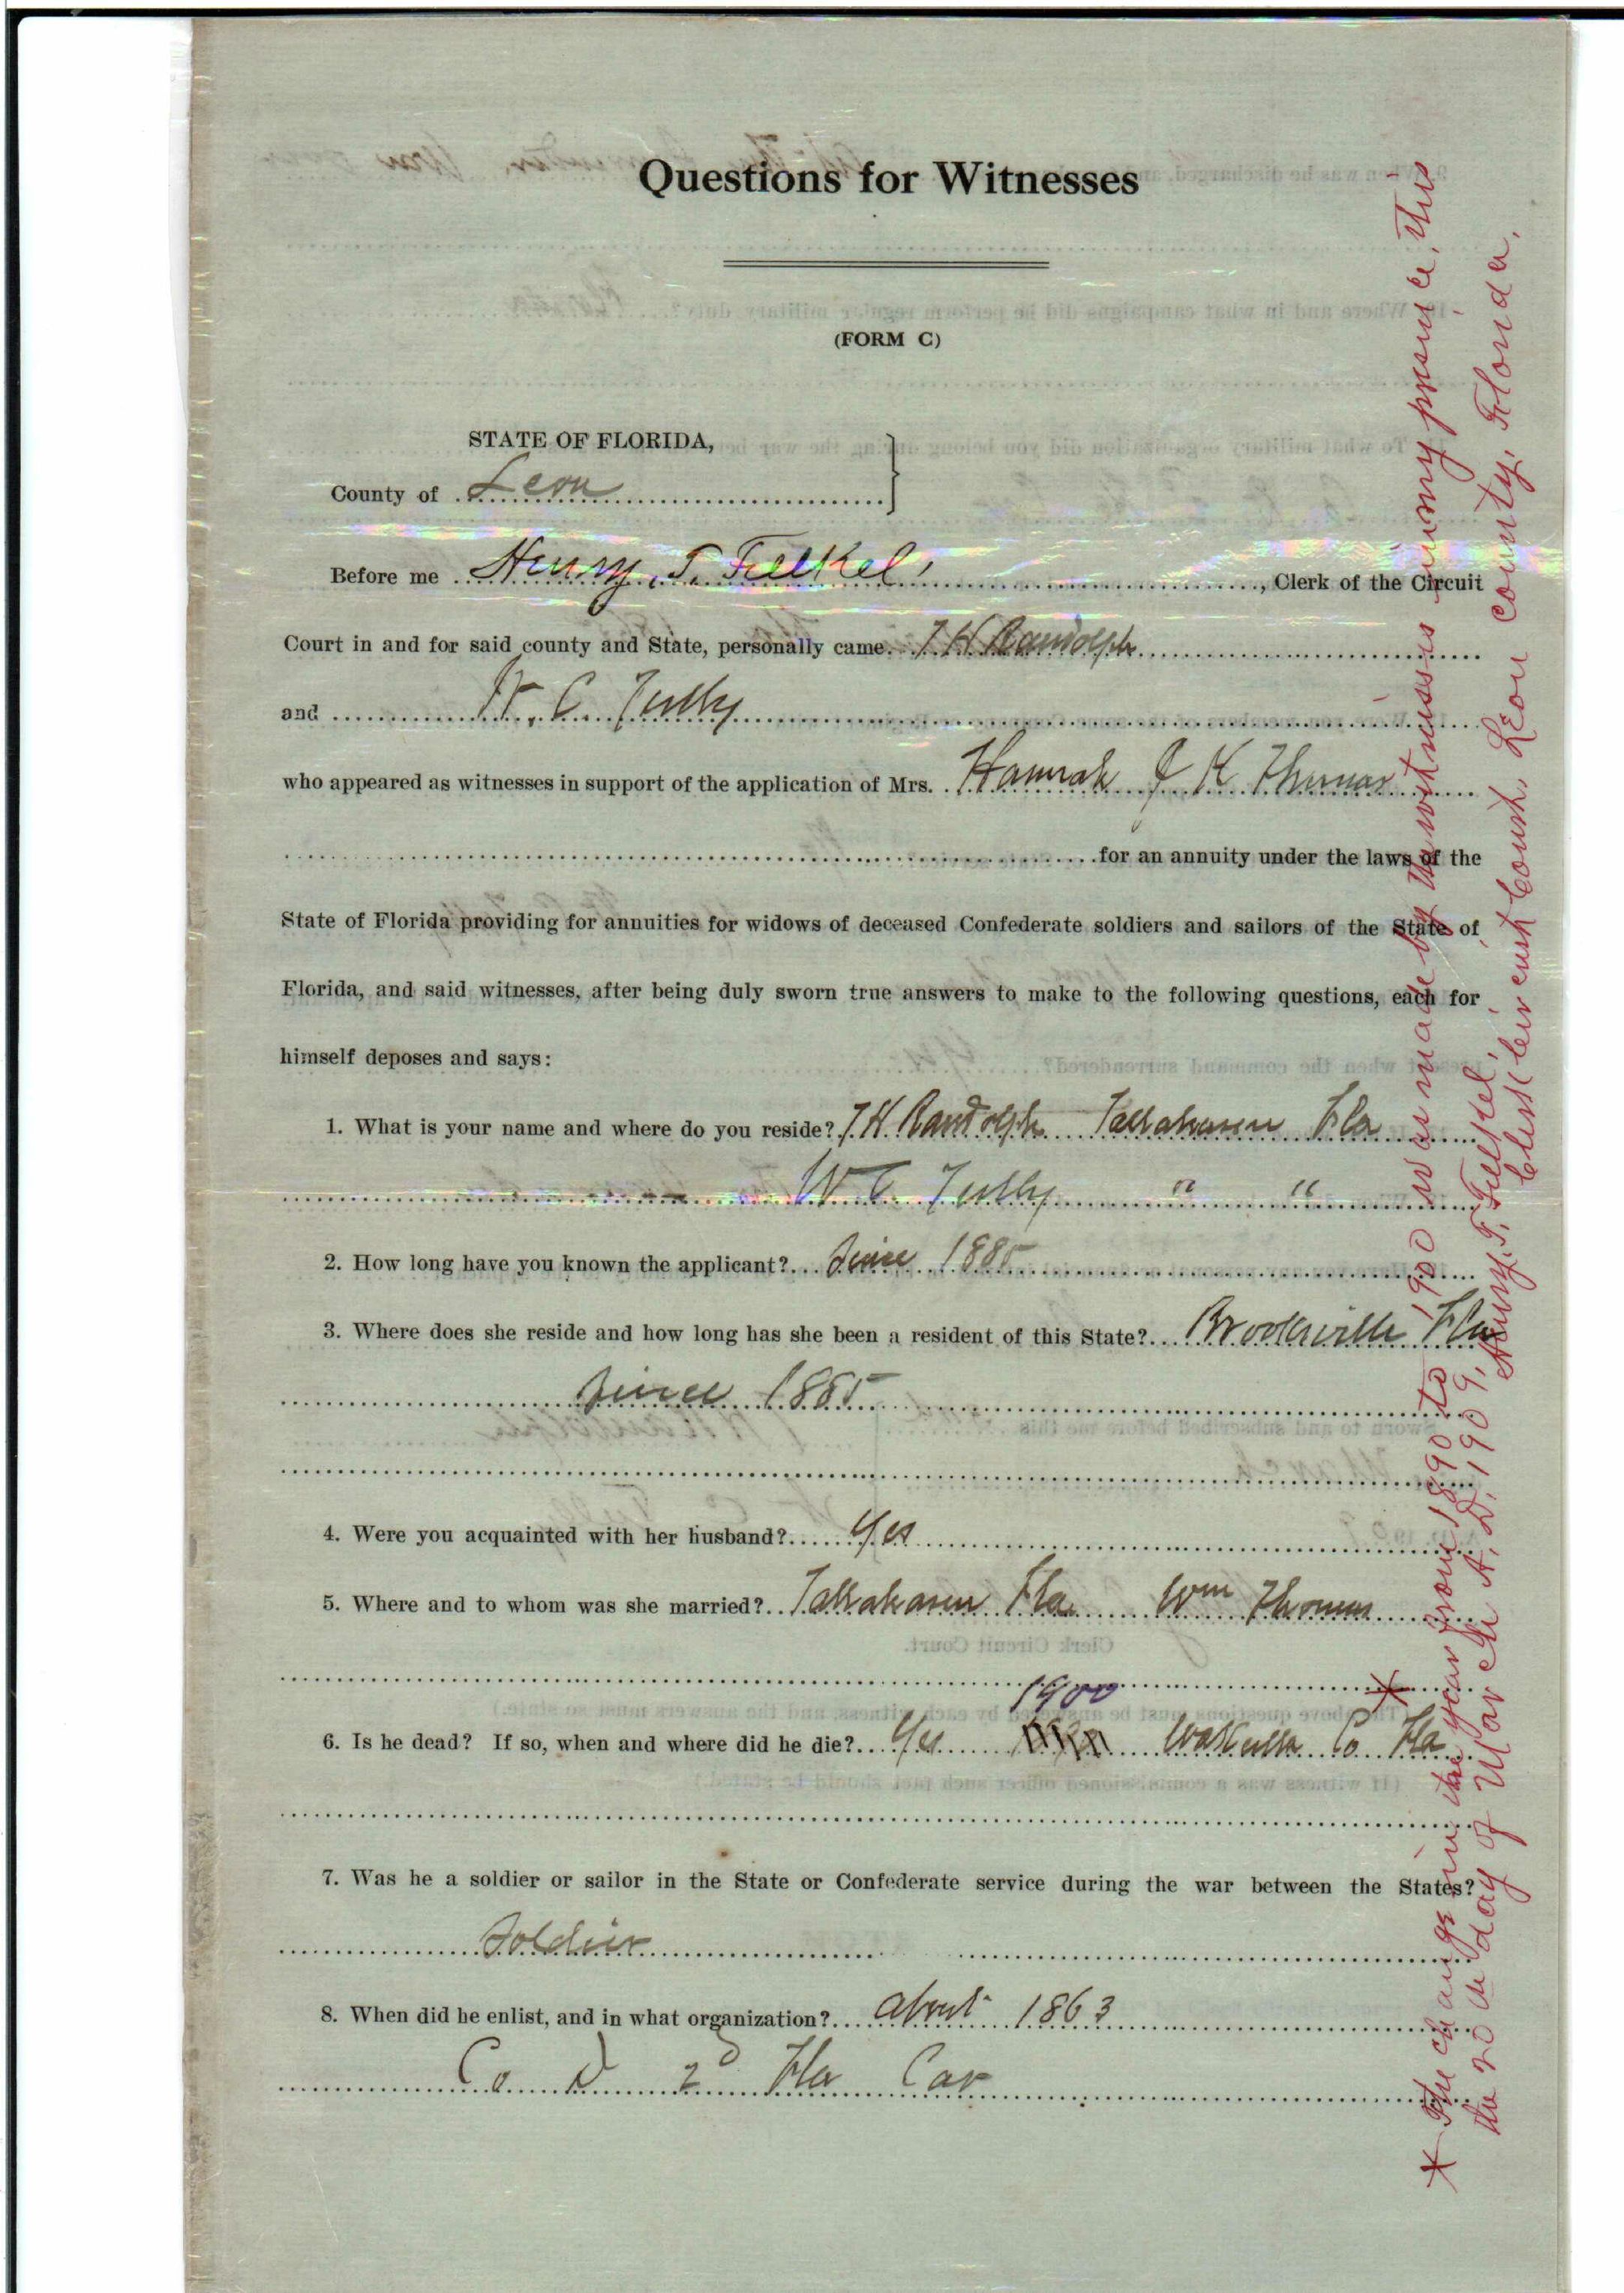 Questions for Witnesses
(FORM C)
STATE OF FLORIDA,
County of Leon
Before me Henry T. Felkel, Clerk of the Circuit
Court in and for said county and State, personally came T H Randolph
and W. C. Tully
who appeared as witnesses in support of the application of Mrs. Hannah J K Thomas
for an annuity under the laws of the
State of Florida providing for annuities for widows of deceased Confederate soldiers and sailors of the State of
Florida, and said witnesses, after being duly sworn true answers to make to the following questions, each for
himself deposes and says:
1. What is your name and where do you reside? T H Randolph Tallahassee Fla
W C Tully " "
2. How long have you known the applicant? Since 1885
3. Where does she reside and how long has she been a resident of this State? Brooksville Fla
Since 1885
4. Were you acquainted with her husband? Yes
5. Where and to whom was she married? Tallahassee Fla Wm Thomas
1900
6. Is he dead? If so, when and where did he die? Yes Wakulla Co Fla
7. Was he a soldier or sailor in the State or Confederate service during the war between the States?
Soldier
8. When did he enlist, and in what organization? about 1863
Co D 2d Fla Cav
* The change in the year from 1890 to 1900 was made by the witnesses in my presence, this
the 20th day of March A. D. 1909, Henry T. Felkel,
Clerk Circuit Court, Leon County, Florida.